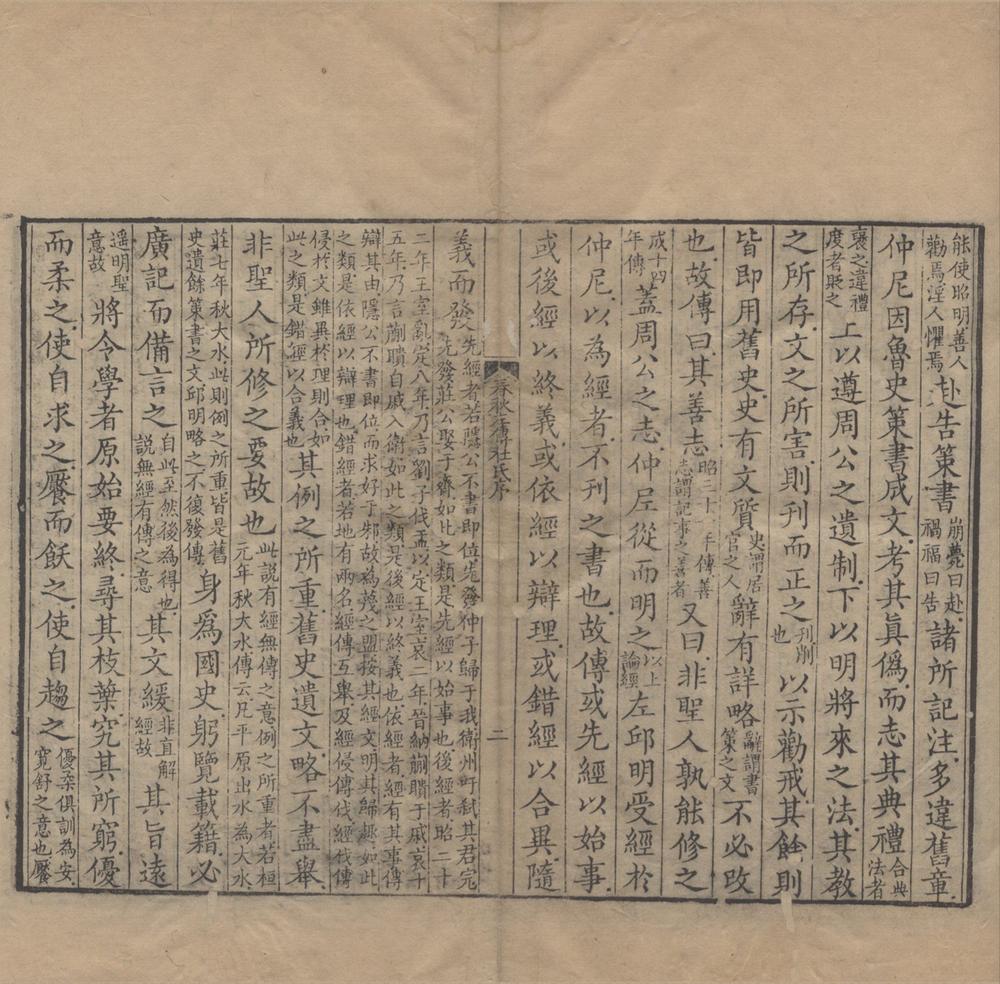 能使昭明善人勸焉淫人懼焉赴告策書崩薨曰赴禍福曰告諸所記注多違舊章
仲尼因魯史策書成文考其真偽而志其典禮合典法者
褒之違禮度者貶之上以遵周公之遺制下以明將來之法其教
之所存文之所害則刊而正之刊削也以示勸戒其餘則
皆即用舊史史有文質史謂居官之人辭有詳略辭謂書策之文不必改
也故傳曰其善志昭三十一年傳善志謂記事之善者又曰非聖人孰能修之
成十四年傳蓋周公之志仲尼從而明之以上論經左邱明受經於
仲尼以為經者不刊之書也故傳或先經以始事
或後經以終義或依經以辯理或錯經以合異隨
春秋左傳杜氏序
二
義而發先經者若隱公不書即位先發仲子歸于我衛州吁弒其君完先發莊公娶于齊如此之類是先經以始事也後經者昭二十
二年王室亂定八年乃言劉子伐盂以定王室哀二年晉納蒯聵于戚哀十五年乃言蒯聵自戚入衛如此之類是後經以終義也依經者經有其事傳
辯其由隱公不書即位而求好于邾故為蔑之盟按其經文明其歸趣如此之類是依經以辯理也錯經者若地有兩名經傳互舉及經侵傳伐經伐傳
侵於文雖異於理則合如此之類是錯經以合義也其例之所重舊史遺文略不盡舉
非聖人所修之要故也此說有經無傳之意例之所重者若桓元年秋大水傳云凡平原出水為大水
莊七年秋大水此則例之所重皆是舊史遺餘策書之文邱明略之不復發傳身為國史躬覽載籍必
廣記而備言之自此至然後為得也說無經有傳之意其文緩非直解經故其旨遠
遥明聖意故將令學者原始要終尋其枝葉究其所窮優
而柔之使自求之饜而飫之使自趨之優柔俱訓為安寬舒之意也饜